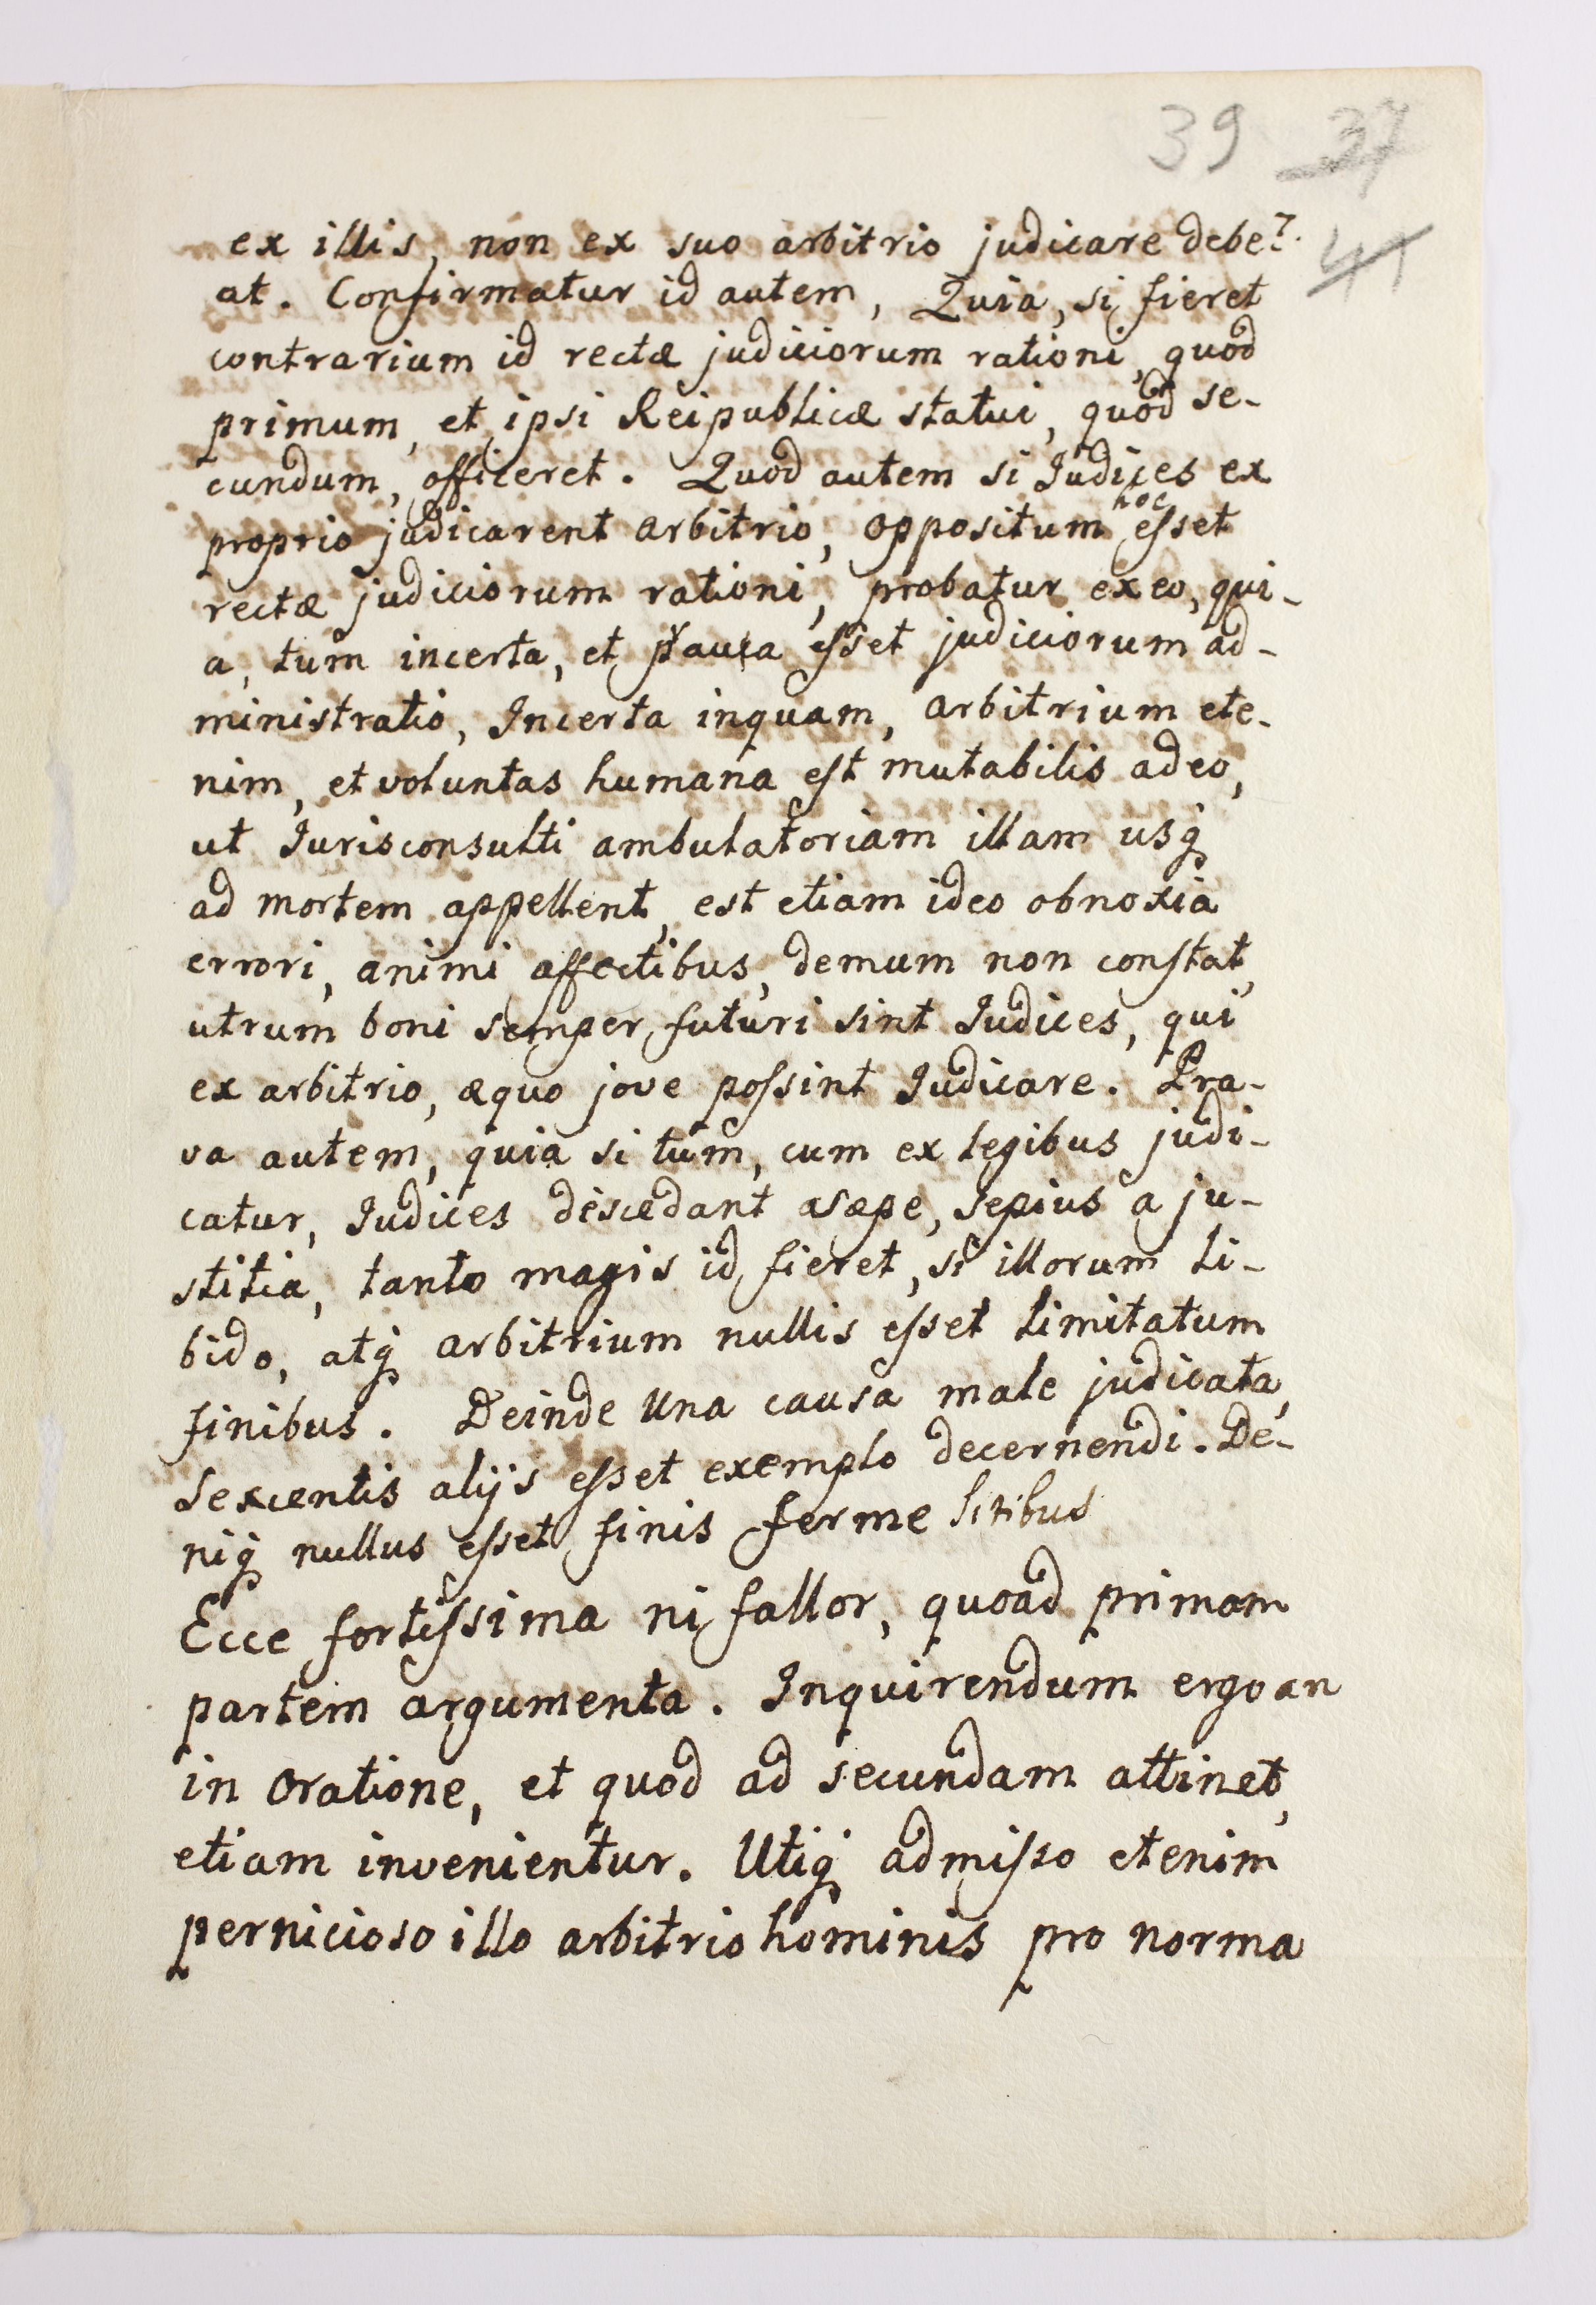 39 37
41
ex illis, non ex suo arbitrio judicare debe-
at. Confirmatur id autem, Quia, si fieret
contrarium id rectæ judiciorum rationi, quod
primum, et ipsi Reipublicæ statui, quod se-
cundum, officeret. Quod autem si Judices ex
proprio judicarent arbitrio, oppositum hoc esset
rectæ judiciorum rationi, probatur ex eo, qui-
a, tum incerta, et esset judiciorum ad-
ministratio, Incerta inquam, arbitrium ete-
nim, et voluntas humana est mutabilis adeo,
ut Jurisconsulti ambulatoriam illam usq
ad mortem appellent, est etiam ideo obnoxia
errori, animi affectibus, demum non constat,
utrum boni semper futuri sint Judices, qui
ex arbitrio, æquo jove possint Judicare. Pra-
va autem, quia si tum, cum ex legibus judi-
catur, Judices discedant asæpe, sepius a ju-
stitia, tanto magis id fieret, si illorum li-
bido, atq arbitrium nullis esset limitatum
finibus. Deinde una causa male judicata,
Sexcentis alijs esset exemplo decernendi. De-
niq nullus esset finis ferme litibus
Ecce fortissima ni fallor, quoad primam
partem argumenta. Inquirendum ergo an
in oratione, et quod ad secundam attinet,
etiam invenientur. Utiq admisso etenim
pernicioso illo arbitrio hominis pro norma